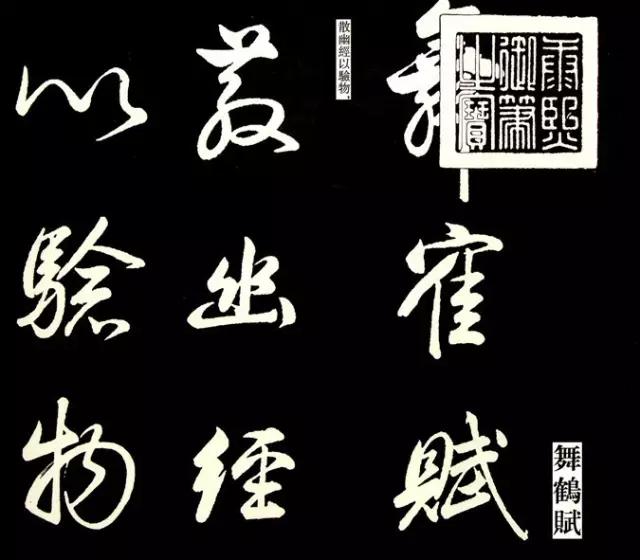 康熙
御筆
之寶
舞鶴賦
舞寉賦
散幽經以驗物，
散幽經
以驗物